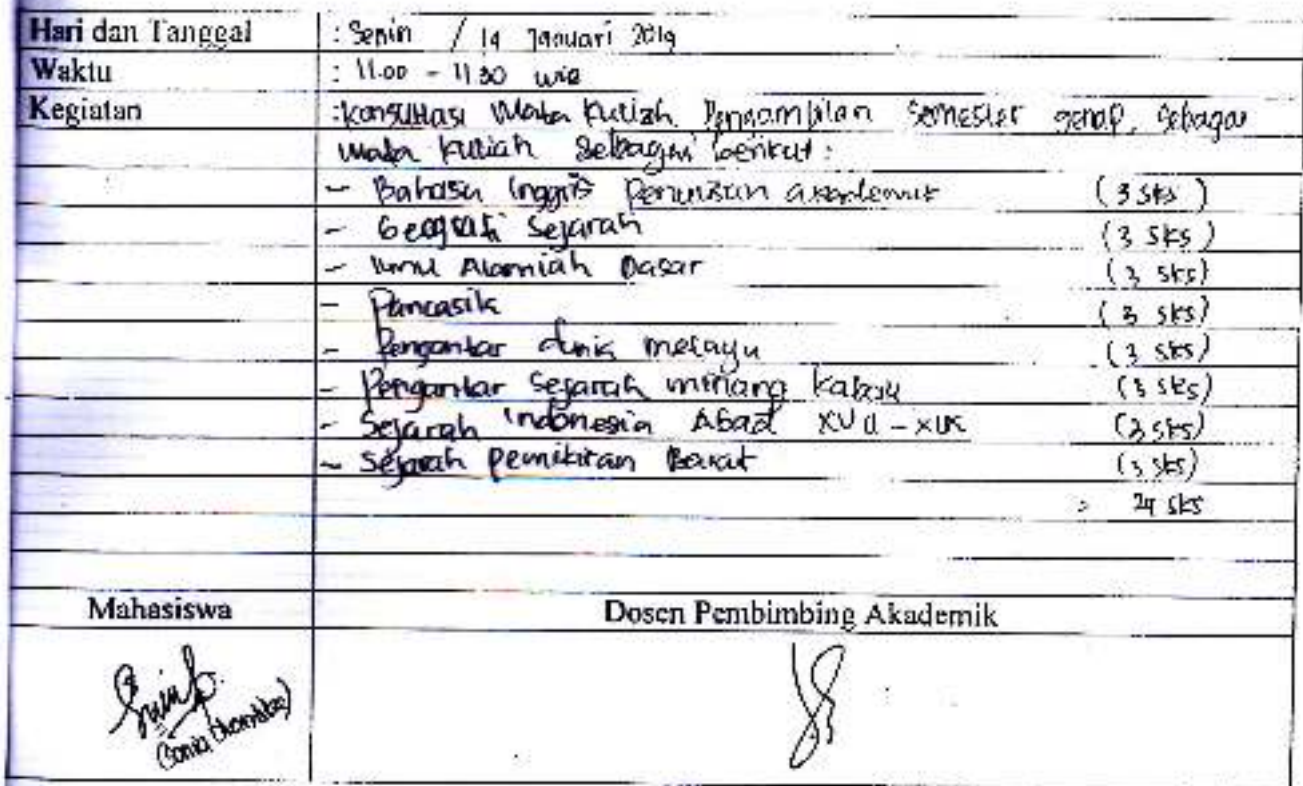 Hari dan Tanggal : Senin / 14 Januari 2019
Waktu : 11.00 - 11 30 WIB
Kegiatan : Konsultasi Mata Kuliah Pengambilan Semester genap, sebagai
mata kuliah sebagai berikut :
- Bahasa Inggris Penulisan akademik (3 sks)
- Geografi Sejarah (3 sks)
- Ilmu Alamiah Dasar (3 sks)
- Pancasila (3 sks)
- Pengantar dunia melayu (3 sks)
- Pengantar Sejarah minang kabau (3 sks)
- Sejarah Indonesia Abad XVII - XIX (3 sks)
- Sejarah pemikiran Barat (3 sks)
= 24 sks
Mahasiswa Dosen Pembimbing Akademik
(Sonia)